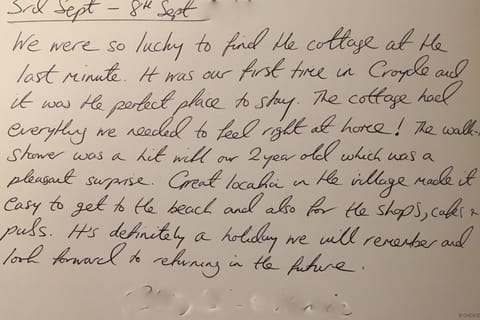 3rd Sept – 8th Sept
We were so lucky to find the cottage at the
last minute. It was our first time in Croyde and
it was the perfect place to stay. The cottage had
everything we needed to feel right at home! The walk-
shower was a hit with our 2 year old which was a
pleasant surprise. Great location in the village made it
easy to get to the beach and also for the shops, cafes
pubs. It's definitely a holiday we will remember and
look forward to returning in the future.